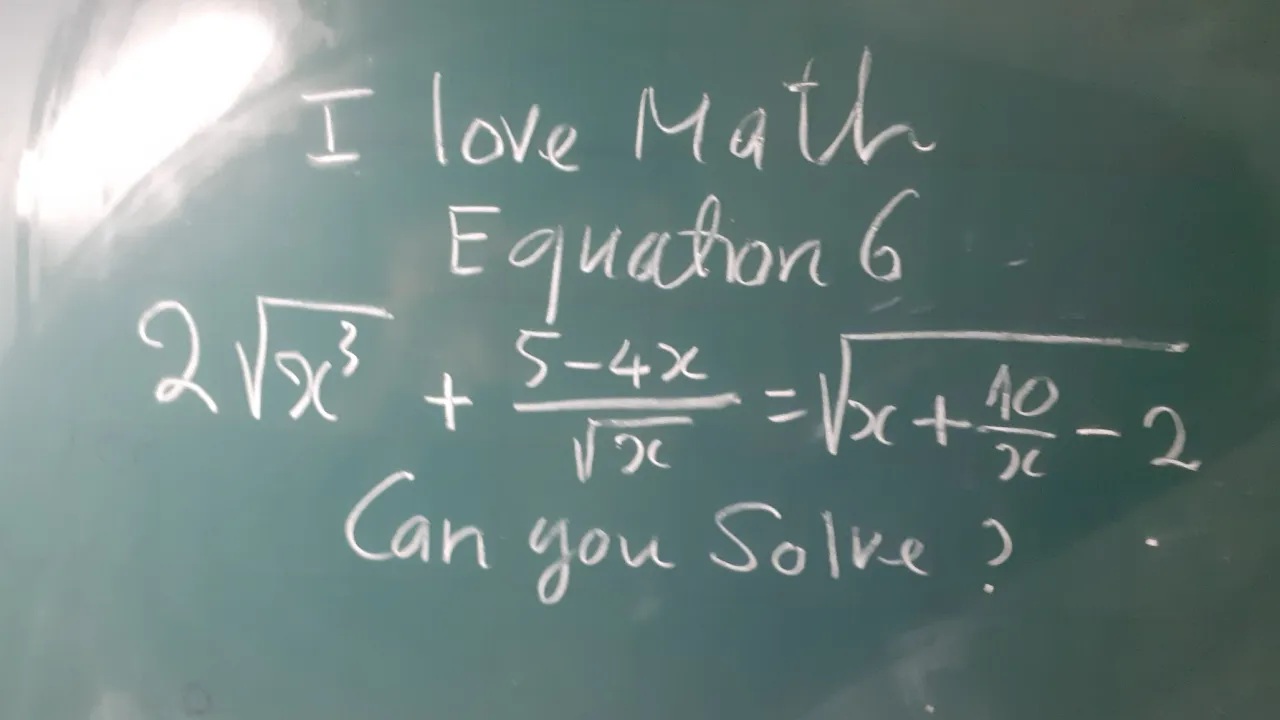 I love Math
Equation 6
2√x³ + (5-4x)/√x = √(x + 10/x - 2)
Can you Solve ?